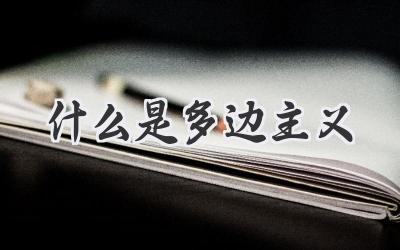 什么是多边主义